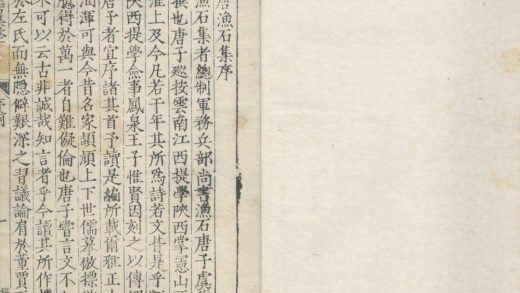 唐漁石集序
漁石集者總制軍務兵部尚書漁石唐子虞
撰也唐子廵按雲南江西提學陝西掌憲山
淮上及今凡若干年其所爲詩若文皆是乎
陝西提學僉事鳳泉王子惟賢因刻之以傳
予者宜序諸其首予讀是編所載爾雅正
渾渾可與今昔名家頡頏上下世儒摹倣標
得於萬一者自難儗倫也唐子嘗言文不
不可以云古非誠哉知言者乎今讀其所作
於左氏而無隱僻艱深之習議論有於董賈